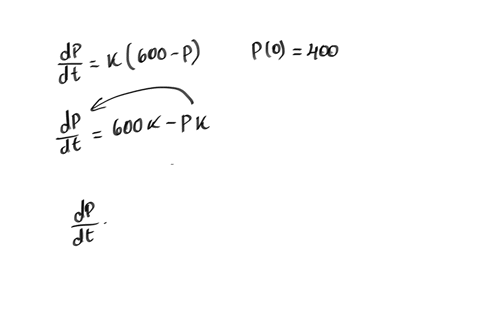 dP/dt = K(600-P) P(0) = 400
dP/dt = 600K - PK
dP/dt